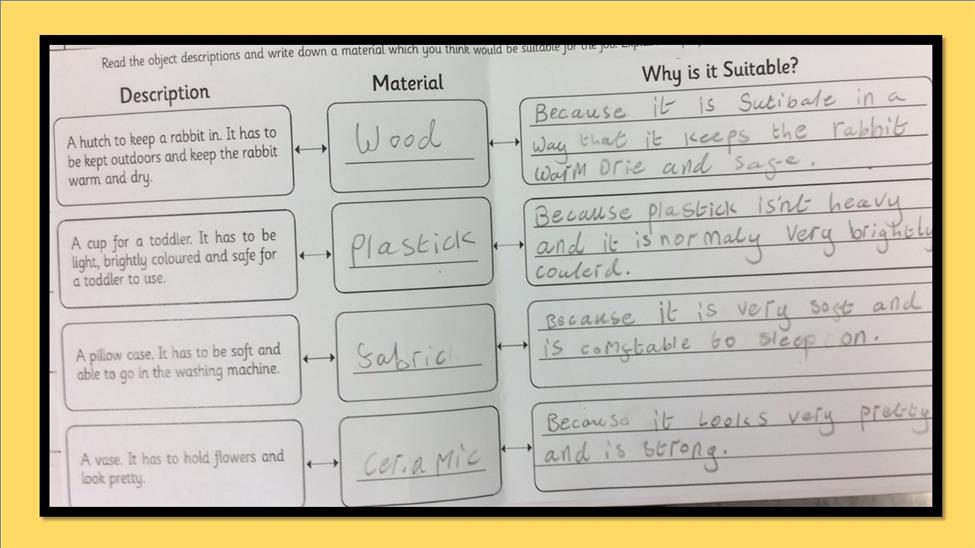 Read the object descriptions and write down a material which you think would be suitable for the job.
Description
Material
Why is it Suitable?
A hutch to keep a rabbit in. It has to
be kept outdoors and keep the rabbit
warm and dry.
Wood
Because it is Sutibale in a
way that it keeps the rabbit
warm Drie and safe.
A cup for a toddler. It has to be
light, brightly coloured and safe for
a toddler to use.
Plastick
Because plastick isn't heavy
and it is normaly very brightly
coulerd.
A pillow case. It has to be soft and
able to go in the washing machine.
fabric
Because it is very soft and
is comftable to sleep on.
A vase. It has to hold flowers and
look pretty.
ceramic
Because it Looks very pretty
and is strong.